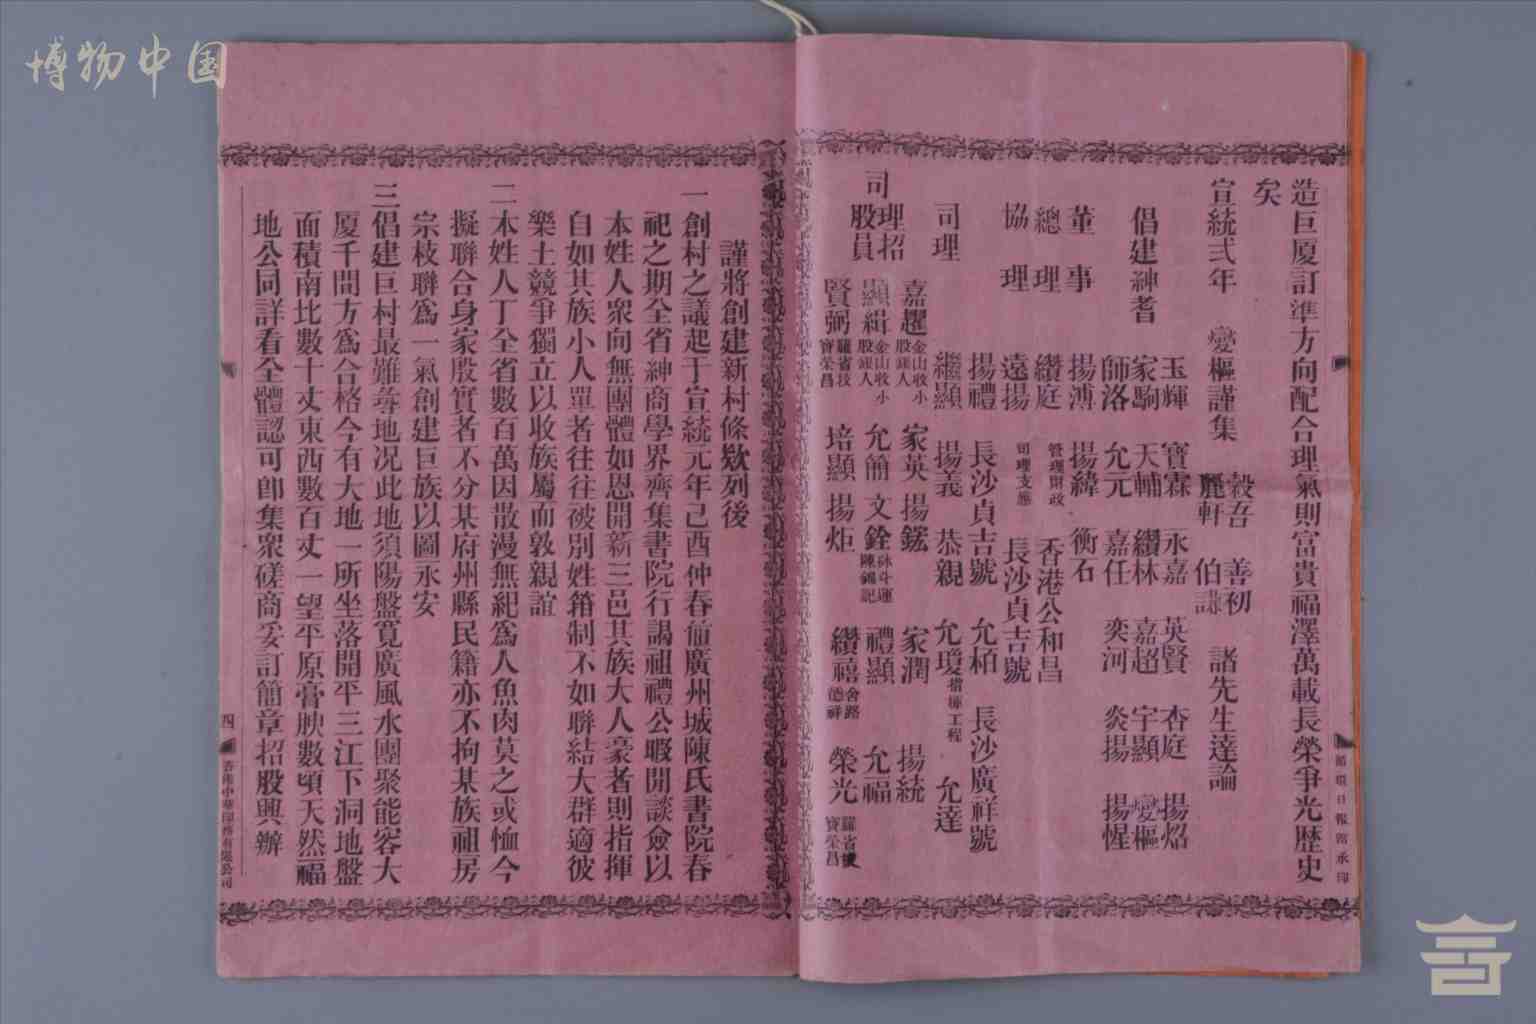 博物中国
造巨厦訂準方向配合理氣則富貴福澤萬載長榮爭光歷史
矣
宣統弍年 燮樞謹集 穀吾 善初 諸先生達論
麗軒 伯謙
倡建紳耆 玉輝 寶霖 永嘉 英賢 杏庭 揚焰
家駒 天輔 纘林 嘉超 宇顯 燮樞
師洛 允元 嘉任 奕河 炎揚 揚惺
董事 揚溥 揚緯 衡石
總理 纘庭 管理財政 香港公和昌
協理 遠揚 司理支應 長沙貞吉號
揚禮 長沙貞吉號 允柏 長沙廣祥號
司理 繼顯 揚義 恭親 允瓊 工程 允達
司理招股員 嘳趯 金山收小股疑人 家英 揚鋐 家潤 揚統
顯緝 金山收小股疑人 允簡 文銓 陳錦記 禮顯 允福
賢弼 羅省技寶榮昌 培顯 揚炬 纘禧 舍路德祥 榮光 羅省技寶榮昌
循環日報館承印
謹將創建新村條欵列後
一創村之議起于宣統元年己酉仲春值廣州城陳氏書院春
祀之期全省紳商學界齊集書院行謁祖禮公暇閒談僉以
本姓人衆向無團體如恩開新三邑其族大人豪者則指揮
自如其族小人單者往往被別姓箝制不如聯結大群適彼
樂土競爭獨立以收族屬而敦親誼
二本姓人丁全省數百萬因散漫無紀爲人魚肉莫之或恤今
擬聯合身家殷實者不分某府州縣民籍亦不拘某族祖房
宗枝聯爲一氣創建巨族以圖永安
三倡建巨村最難尋地况此地須陽盤寬廣風水團聚能容大
厦千間方爲合格今有大地一所坐落開平三江下洞地盤
面積南北數十丈東西數百丈一望平原膏腴數頃天然福
地公同詳看全體認可卽集衆磋商妥訂簡章招股興辦
四 香港中華印務有限公司